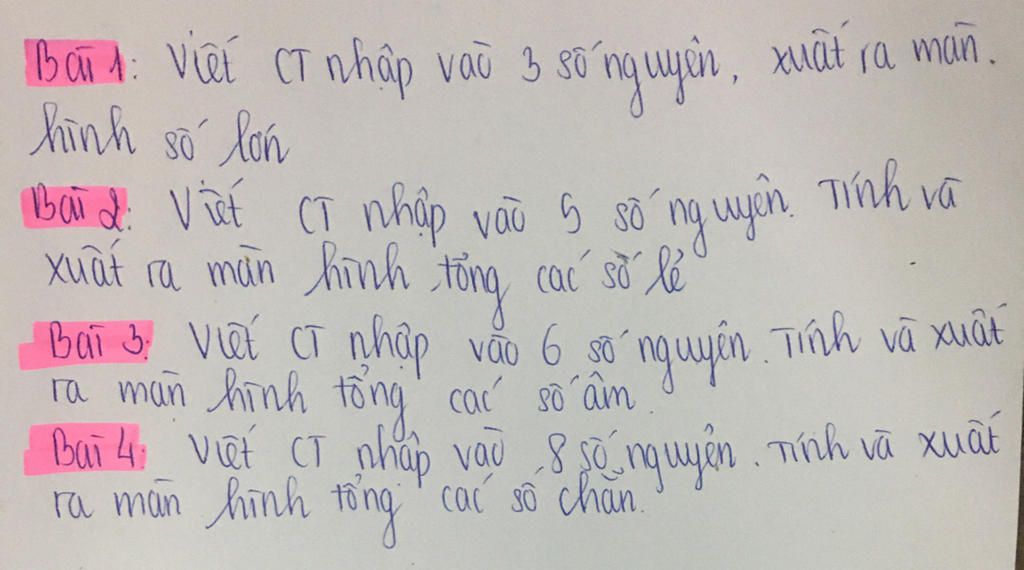 Bài 1: Viết CT nhập vào 3 số nguyên, xuất ra màn.
hình số lớn
Bài 2: Viết CT nhập vào 5 số nguyên. Tính và
xuất ra màn hình tổng các số lẻ
Bài 3: Viết CT nhập vào 6 số nguyên. Tính và xuất
ra màn hình tổng các số âm.
Bài 4: Viết CT nhập vào 8 số nguyên. Tính và xuất
ra màn hình tổng các số chẵn.